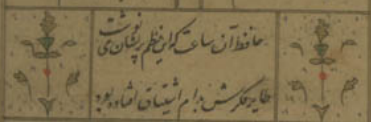 حافظ آن ساعت که این نظم پریشان می نوشت
طایر فکرش بدام اشتیاق افتاده بود